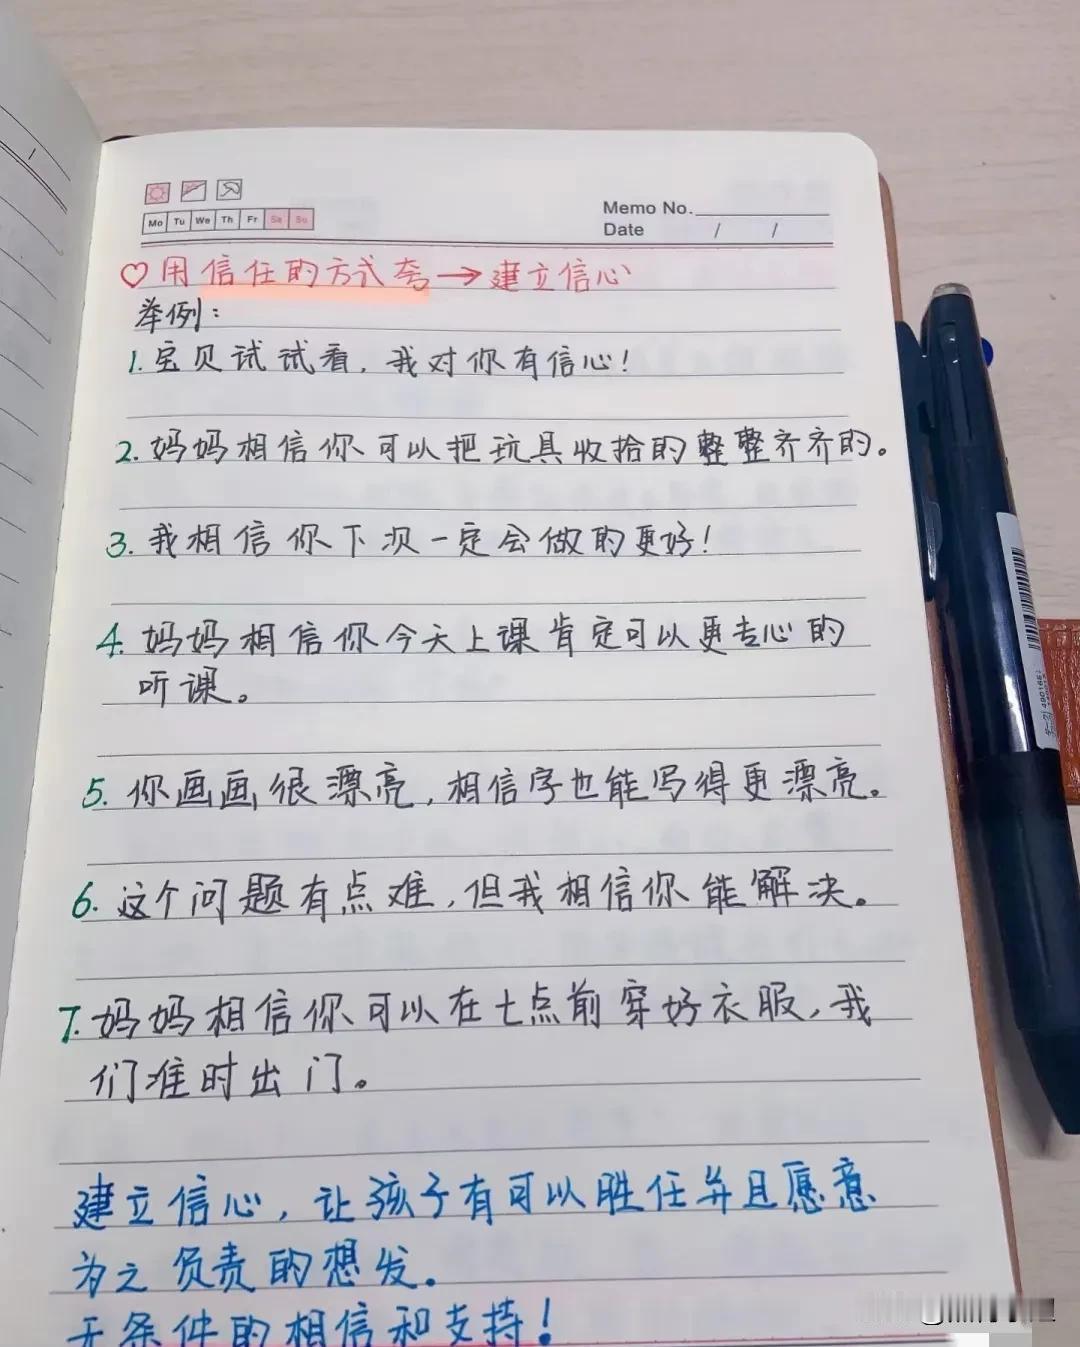 Mo Tu We Th Fr Sa Su
Memo No.
Date / /
♡用信任的方式夸→建立信心
举例：
1.宝贝试试看，我对你有信心！
2.妈妈相信你可以把玩具收拾的整整齐齐的。
3.我相信你下次一定会做的更好！
4.妈妈相信你今天上课肯定可以更专心的
听课。
5.你画画很漂亮，相信字也能写得更漂亮。
6.这个问题有点难，但我相信你能解决。
7.妈妈相信你可以在七点前穿好衣服，我
们准时出门。
建立信心，让孩子有可以胜任并且愿意
为之负责的想发.
无条件的相信和支持！